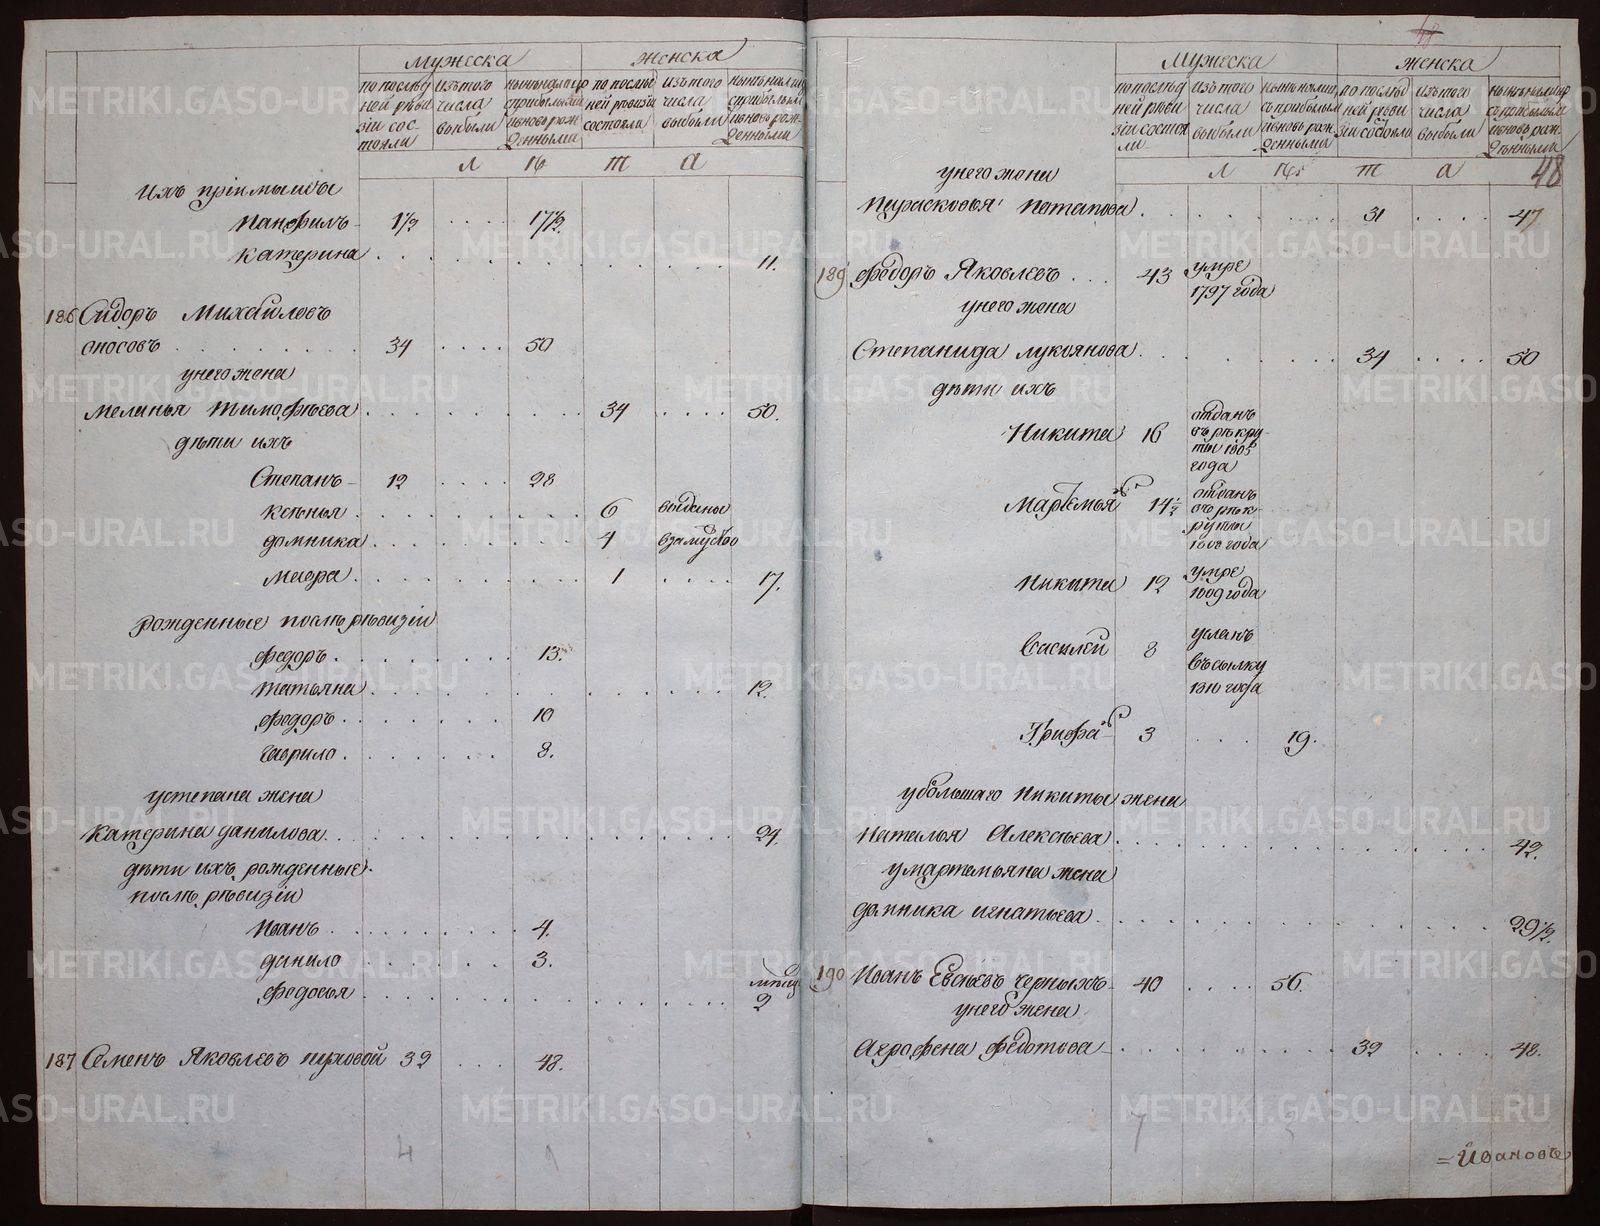 мужеска
женска
по послѣд
ней реви
зіи сос-
тояли
изъ того
числа
выбыли
нынѣ на лицо
с прибылыми
и вновь рож-
денными
по послѣд
ней ревизіи
состояли
изъ того
числа
выбыли
нынѣ на лицо
с прибылыми
и вновь рож-
денными
л
ѣ
т
а
ихъ пріимышъ
Панфилъ 1½ 17½
катерина 11.
186 Сидоръ Михайловъ
Оносовъ 34 50
унего жена
меланья тимофѣева 34 50.
дѣти ихъ
Степанъ 12 28
ксѣнья 6 выданы
домника 4 взамужво
мавра 1 17.
рожденные послѣ ревизіи
федоръ 13.
татьяна 12.
федоръ 10
гаврило 8.
устепана жена
катерина данилова 24.
дѣти ихъ рожденные
послѣ ревизіи
иванъ 4.
данило 3.
федосья 2
187 Семенъ Яковлевъ 32 48.
48
мужеска
женска
по послѣд
ней реви
зіи состоя
ли
изъ того
числа
выбыли
нынѣ на лицо
с прибылым
и вновь рож-
денными
по послѣд
ней реви
зіи состояло
изъ того
числа
выбыли
нынѣ на лицо
с прибылым
и вновь рож-
денными
л
ѣ
т
а
48
унего жена
Парасковья Потапова 31 47
189 федоръ Яковлевъ 43 умре
1797 года
унего жена
Степанида лукоянова 34 50
дѣти ихъ
Никита 16 отданъ
въ рекру-
ты 1805
года
Мартемья 14½ отданъ
въ рек-
руты
1808 года
Никита 12 умре
1809 года
Василей 8 усланъ
въ сылку
1810 года
Трифа 3 19.
у большаго Никиты жена
Наталья Алексѣева 42.
у мартемьяна жена
домника игнатьева 29½.
190 Иванъ Евсѣевъ черныхъ 40 56.
унего жена
Аграфена федотова 32 48.
=Ивановъ
METRIKI.GASO-URAL.RU